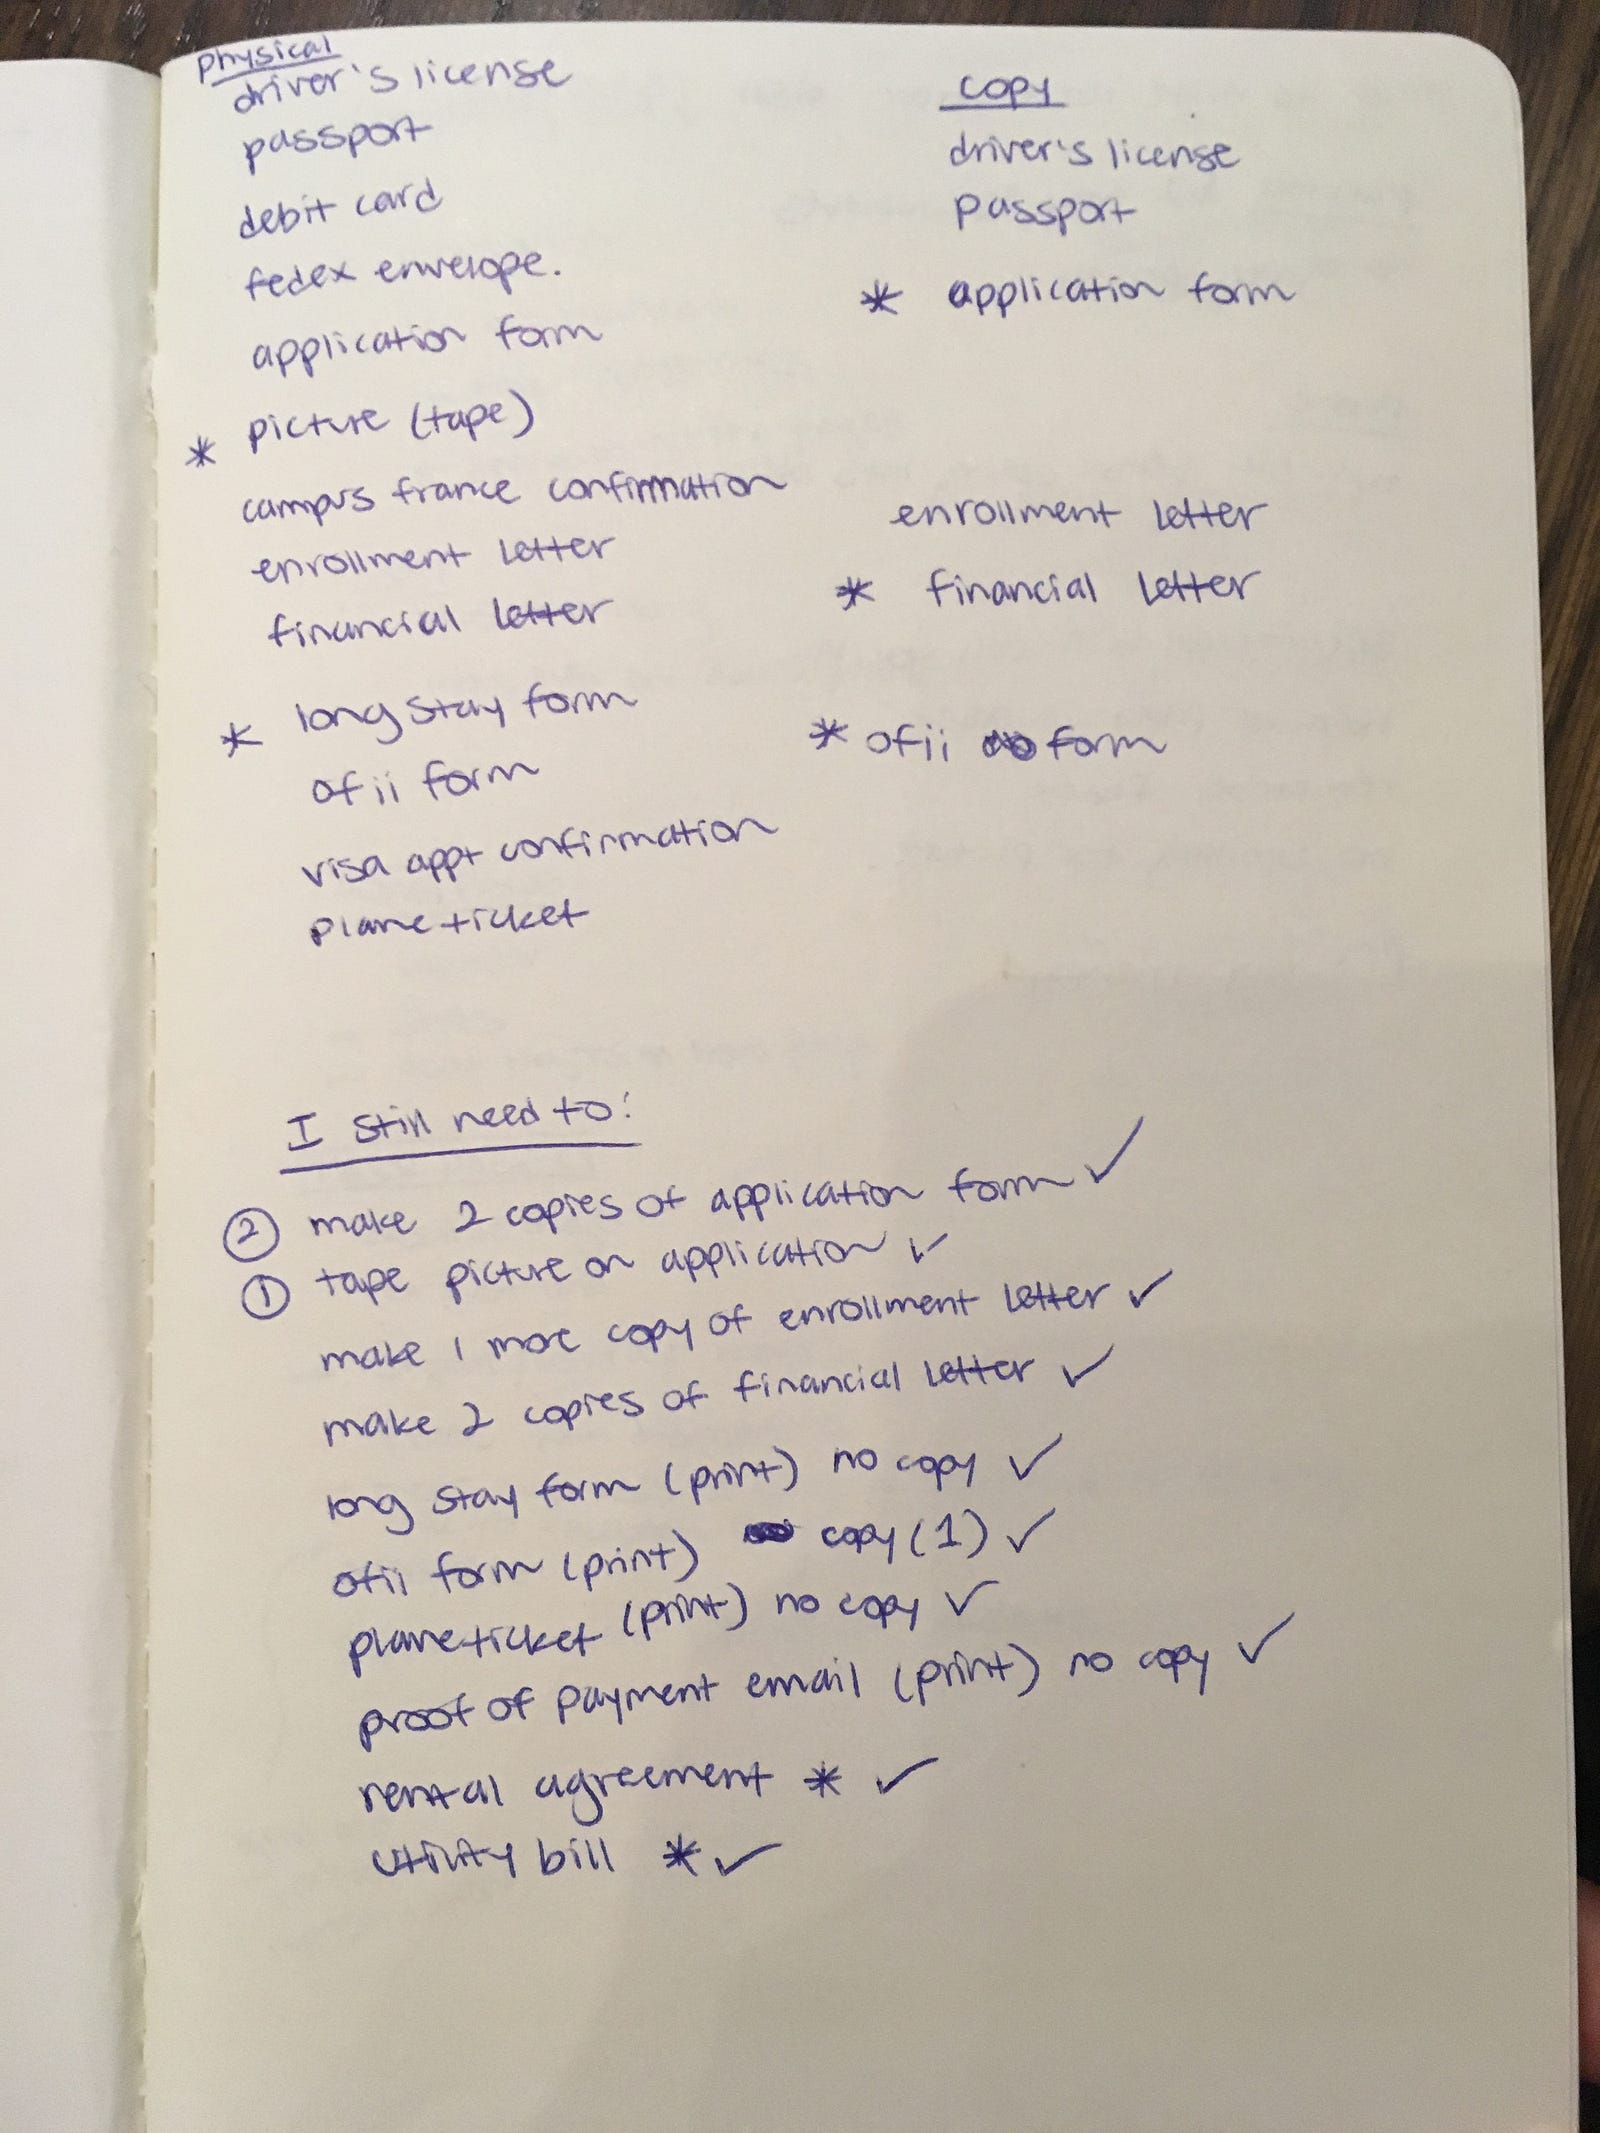 physical
driver's license
passport
debit card
fedex envelope.
application form
* picture (tape)
campus france confirmation
enrollment letter
financial letter
* long stay form
ofii form
visa appt confirmation
plane ticket
copy
driver's license
passport
* application form
enrollment letter
* financial letter
* ofii form
I still need to:
② make 2 copies of application form ✓
① tape picture on application ✓
make 1 more copy of enrollment letter ✓
make 2 copies of financial letter ✓
long stay form (print) no copy ✓
ofii form (print) copy (1) ✓
plane ticket (print) no copy ✓
proof of payment email (print) no copy ✓
rental agreement * ✓
utility bill * ✓